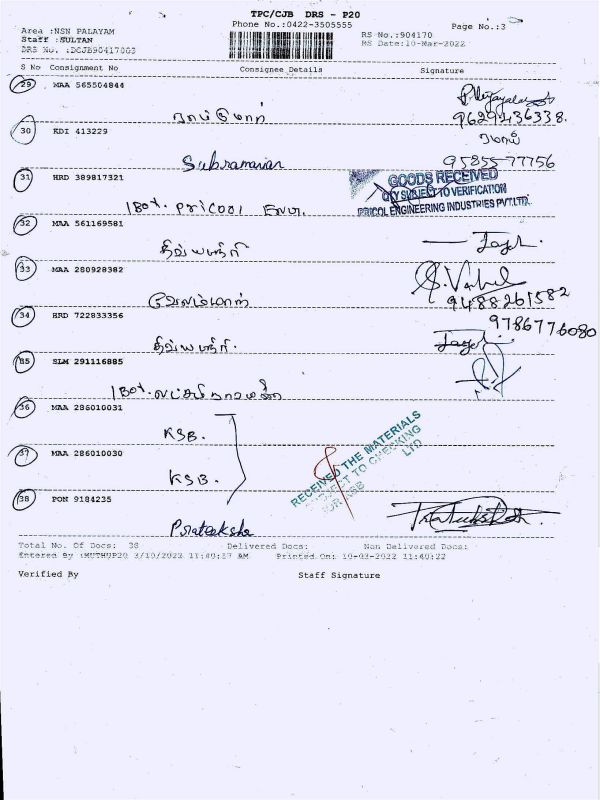 TPC/CJB DRS - P20
Phone No.:0422-3505555
Page No.:3
Area :NSN PALAYAM
Staff :SULTAN
DRS No. :DCJB90417003
RS No.:904170
RS Date:10-Mar-2022
S No Consignment No Consignee Details Signature
29 MAA 565504844
9629436338.
30 KDI 413229
Subramanian 95855-77756
31 HRD 389817321
GOODS RECEIVED
QTY SUBJECT TO VERIFICATION
PRICOL ENGINEERING INDUSTRIES PVT.LTD.
1Box. Pricol
32 MAA 561169581
33 MAA 280928382
9488261582
34 HRD 722833356
9786776080
35 SLM 291116885
36 MAA 286010031
KSB.
RECEIVED THE MATERIALS
SUBJECT TO CHECKING
FOR KSB LTD
37 MAA 286010030
KSB.
38 PON 9184235
Prateeksha
Total No. Of Docs: 38 Delivered Docs: Non Delivered Docs:
Entered By :MUTHUP20 3/10/2022 11:40:17 AM Printed On: 10-03-2022 11:40:22
Verified By Staff Signature